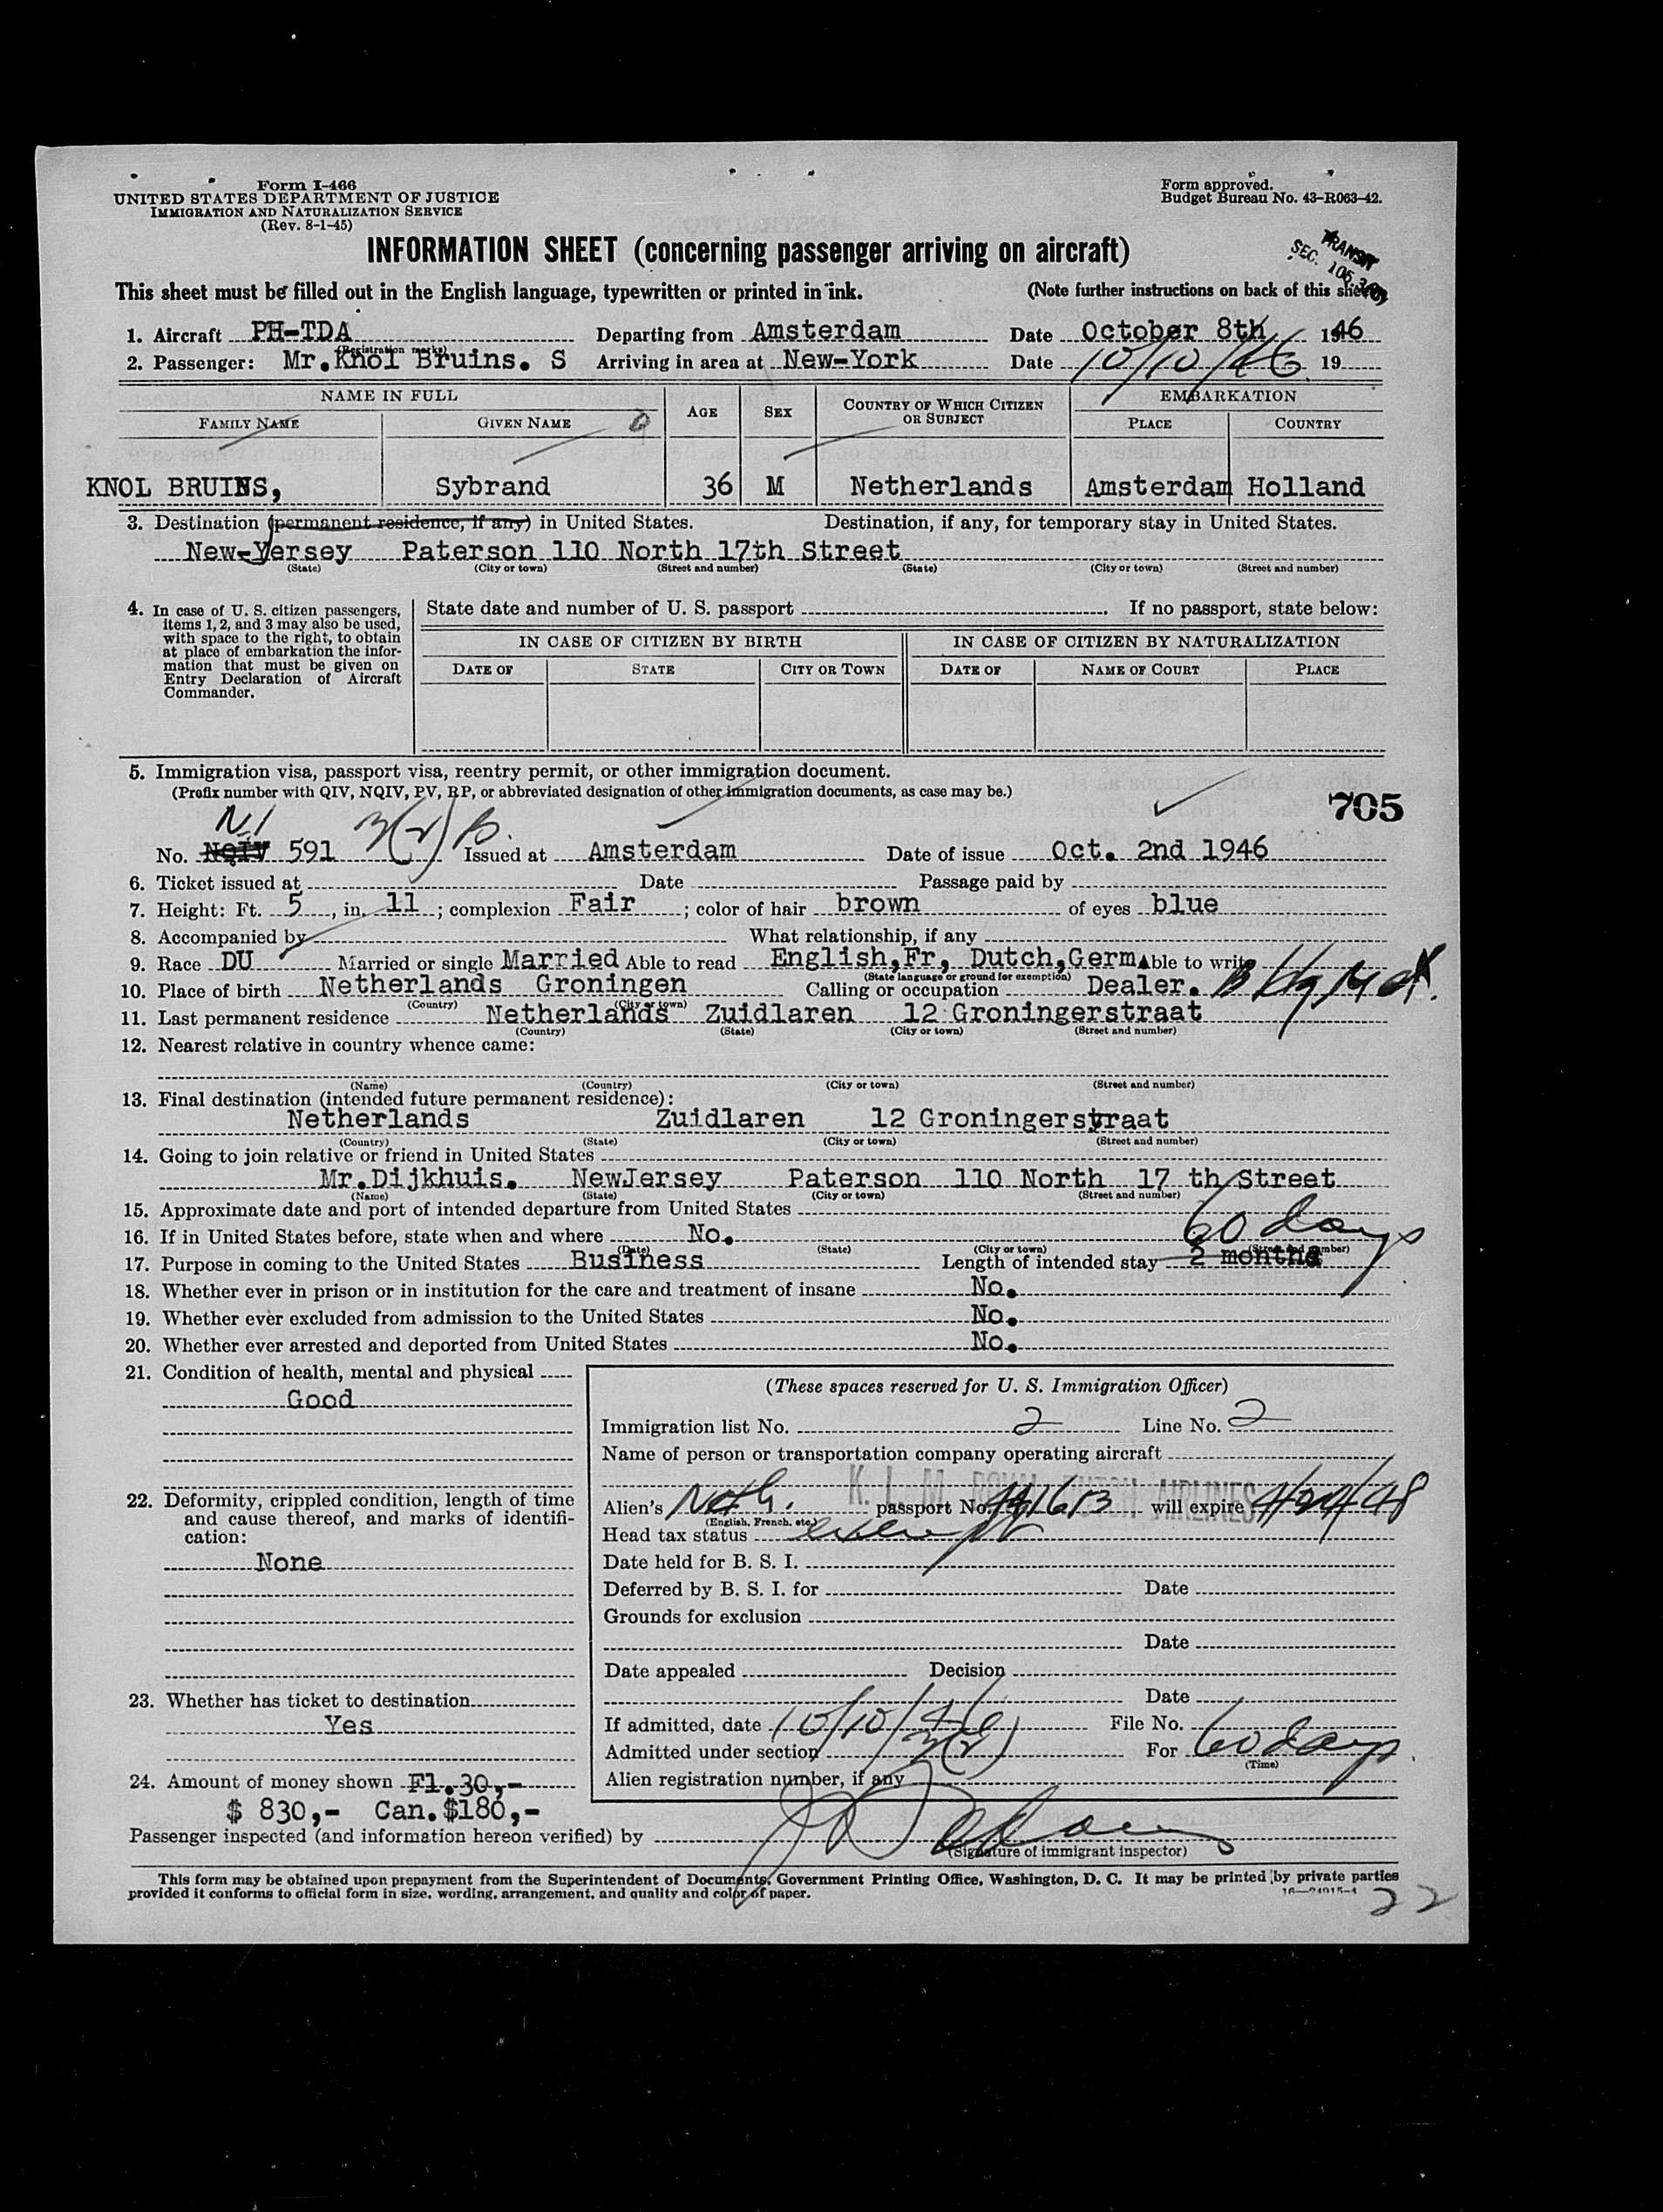 Form I-466
UNITED STATES DEPARTMENT OF JUSTICE
IMMIGRATION AND NATURALIZATION SERVICE
(Rev. 8-1-45)
Form approved.
Budget Bureau No. 43-R063-42.
INFORMATION SHEET (concerning passenger arriving on aircraft)
TRANSIT
SEC. 105
This sheet must be filled out in the English language, typewritten or printed in ink. (Note further instructions on back of this sheet)
1. Aircraft PH-TDA Departing from Amsterdam Date October 8th 1946
(Registration marks)
2. Passenger: Mr. Knol Bruins. S Arriving in area at New-York Date 10/10/46 19
NAME IN FULL AGE SEX COUNTRY OF WHICH CITIZEN OR SUBJECT EMBARKATION
FAMILY NAME GIVEN NAME PLACE COUNTRY
KNOL BRUINS, Sybrand 36 M Netherlands Amsterdam Holland
3. Destination (permanent residence, if any) in United States. Destination, if any, for temporary stay in United States.
New-Yersey Paterson 110 North 17th Street
(State) (City or town) (Street and number) (State) (City or town) (Street and number)
4. In case of U. S. citizen passengers, items 1, 2, and 3 may also be used, with space to the right, to obtain at place of embarkation the information that must be given on Entry Declaration of Aircraft Commander.
State date and number of U. S. passport If no passport, state below:
IN CASE OF CITIZEN BY BIRTH IN CASE OF CITIZEN BY NATURALIZATION
DATE OF STATE CITY OR TOWN DATE OF NAME OF COURT PLACE
5. Immigration visa, passport visa, reentry permit, or other immigration document.
(Prefix number with QIV, NQIV, PV, RP, or abbreviated designation of other immigration documents, as case may be.)
705
NI 3(2) B.
No. NQIV 591 Issued at Amsterdam Date of issue Oct. 2nd 1946
6. Ticket issued at Date Passage paid by
7. Height: Ft. 5, in. 11; complexion Fair; color of hair brown of eyes blue
8. Accompanied by What relationship, if any
9. Race DU Married or single Married Able to read English,Fr, Dutch,Germ Able to write
(State language or ground for exemption)
10. Place of birth Netherlands Groningen Calling or occupation Dealer.
(Country) (City or town)
11. Last permanent residence Netherlands Zuidlaren 12 Groningerstraat
(Country) (State) (City or town) (Street and number)
12. Nearest relative in country whence came:
(Name) (Country) (City or town) (Street and number)
13. Final destination (intended future permanent residence):
Netherlands Zuidlaren 12 Groningerstraat
(Country) (State) (City or town) (Street and number)
14. Going to join relative or friend in United States
Mr.Dijkhuis. NewJersey Paterson 110 North 17 th Street
(Name) (State) (City or town) (Street and number)
15. Approximate date and port of intended departure from United States
16. If in United States before, state when and where No. 60 days
(Date) (State) (City or town) (Street and number)
17. Purpose in coming to the United States Business Length of intended stay 2 months
18. Whether ever in prison or in institution for the care and treatment of insane No.
19. Whether ever excluded from admission to the United States No.
20. Whether ever arrested and deported from United States No.
21. Condition of health, mental and physical
Good
22. Deformity, crippled condition, length of time and cause thereof, and marks of identification:
None
23. Whether has ticket to destination
Yes
24. Amount of money shown Fl.30,-
$ 830,- Can.$180,-
(These spaces reserved for U. S. Immigration Officer)
Immigration list No. 2 Line No. 2
Name of person or transportation company operating aircraft
K. L. M. ROYAL DUTCH AIRLINES
Alien's Neth. passport No. will expire 4/24/48
(English, French, etc.)
Head tax status
Date held for B. S. I.
Deferred by B. S. I. for Date
Grounds for exclusion
Date
Date appealed Decision
Date
If admitted, date 10/10/46 File No.
Admitted under section 3(2) For 60 days
(Time)
Alien registration number, if any
Passenger inspected (and information hereon verified) by
(Signature of immigrant inspector)
This form may be obtained upon prepayment from the Superintendent of Documents, Government Printing Office, Washington, D. C. It may be printed by private parties
provided it conforms to official form in size, wording, arrangement, and quality and color of paper.
16—24915-1
22